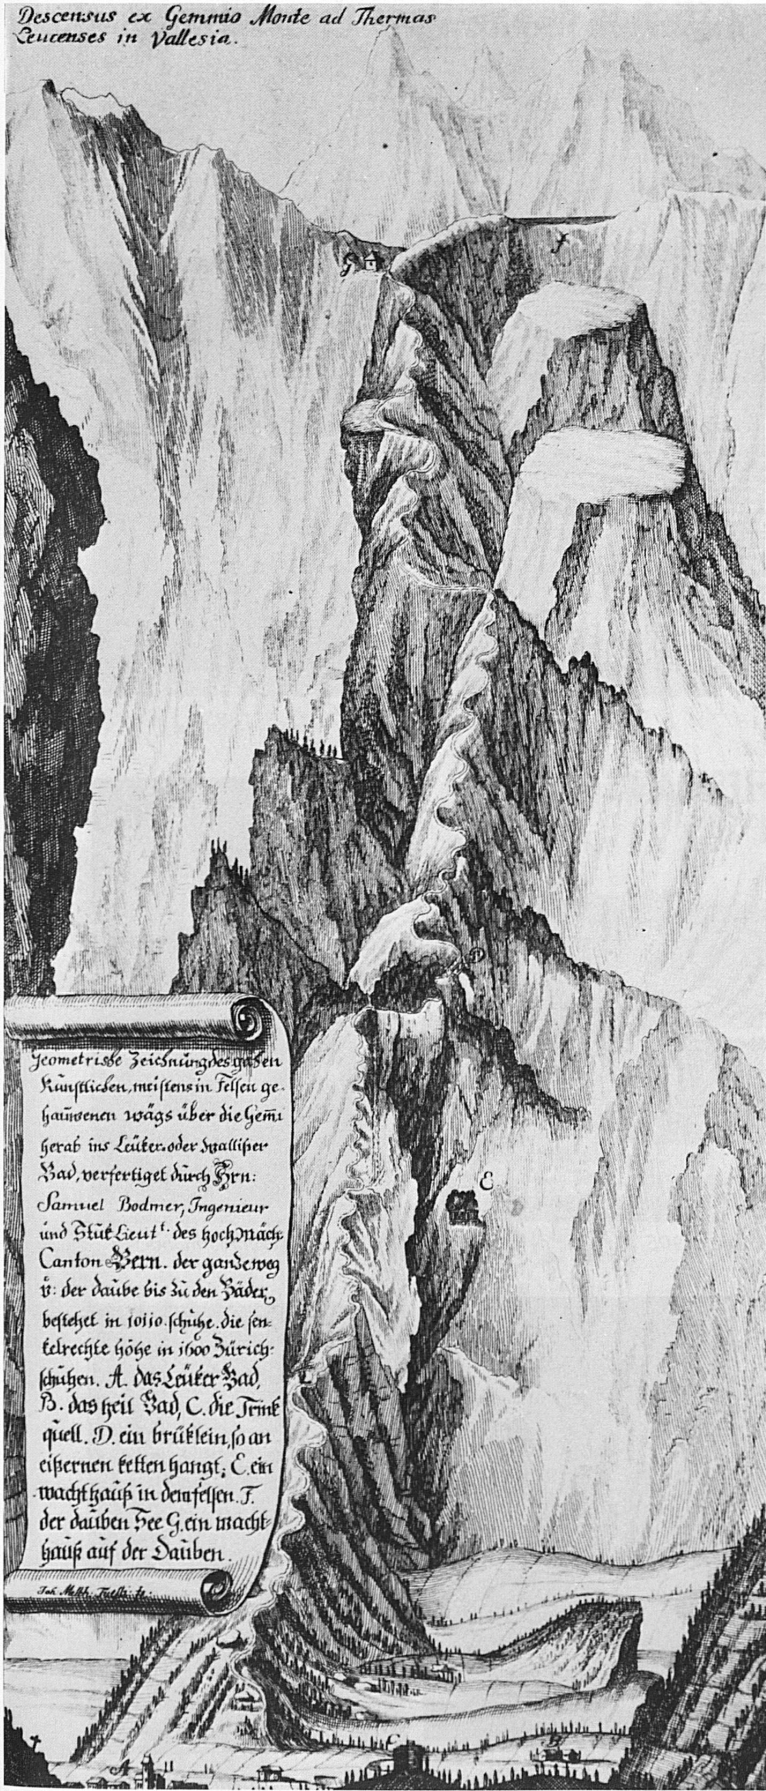 Descensus ex Gemmio Monte ad Thermas
Leucenses in Vallesia.
G
f
D
E
Geometrisbe Zeichnung des gantzen
Künstlichen, meistens in Felsen ge-
hauwenen wägs über die Gem̄i
herab ins Leüker oder Walliser
Bad, verfertiget durch Hrn:
Samuel Bodmer, Ingenieur
und Stuk Lieut.t des hoch Mäch:
Canton Bern. der gantze weg
v: der daube bis zu den Bäder,
bestehet in 10110. schuhe. die sen-
kelrechte höhe in 1600 Zürich-
schuhen. A. das Leüker Bad,
B. das heil Bad, C. die Trink
quell. D. ein brüklein, so an
eisernen ketten hangt; E. ein
wachthauß in dem felsen. F.
der dauben See G. ein wacht-
hauß auf der Dauben.
Joh. Melch. Fuesli. fe.
A
C
B